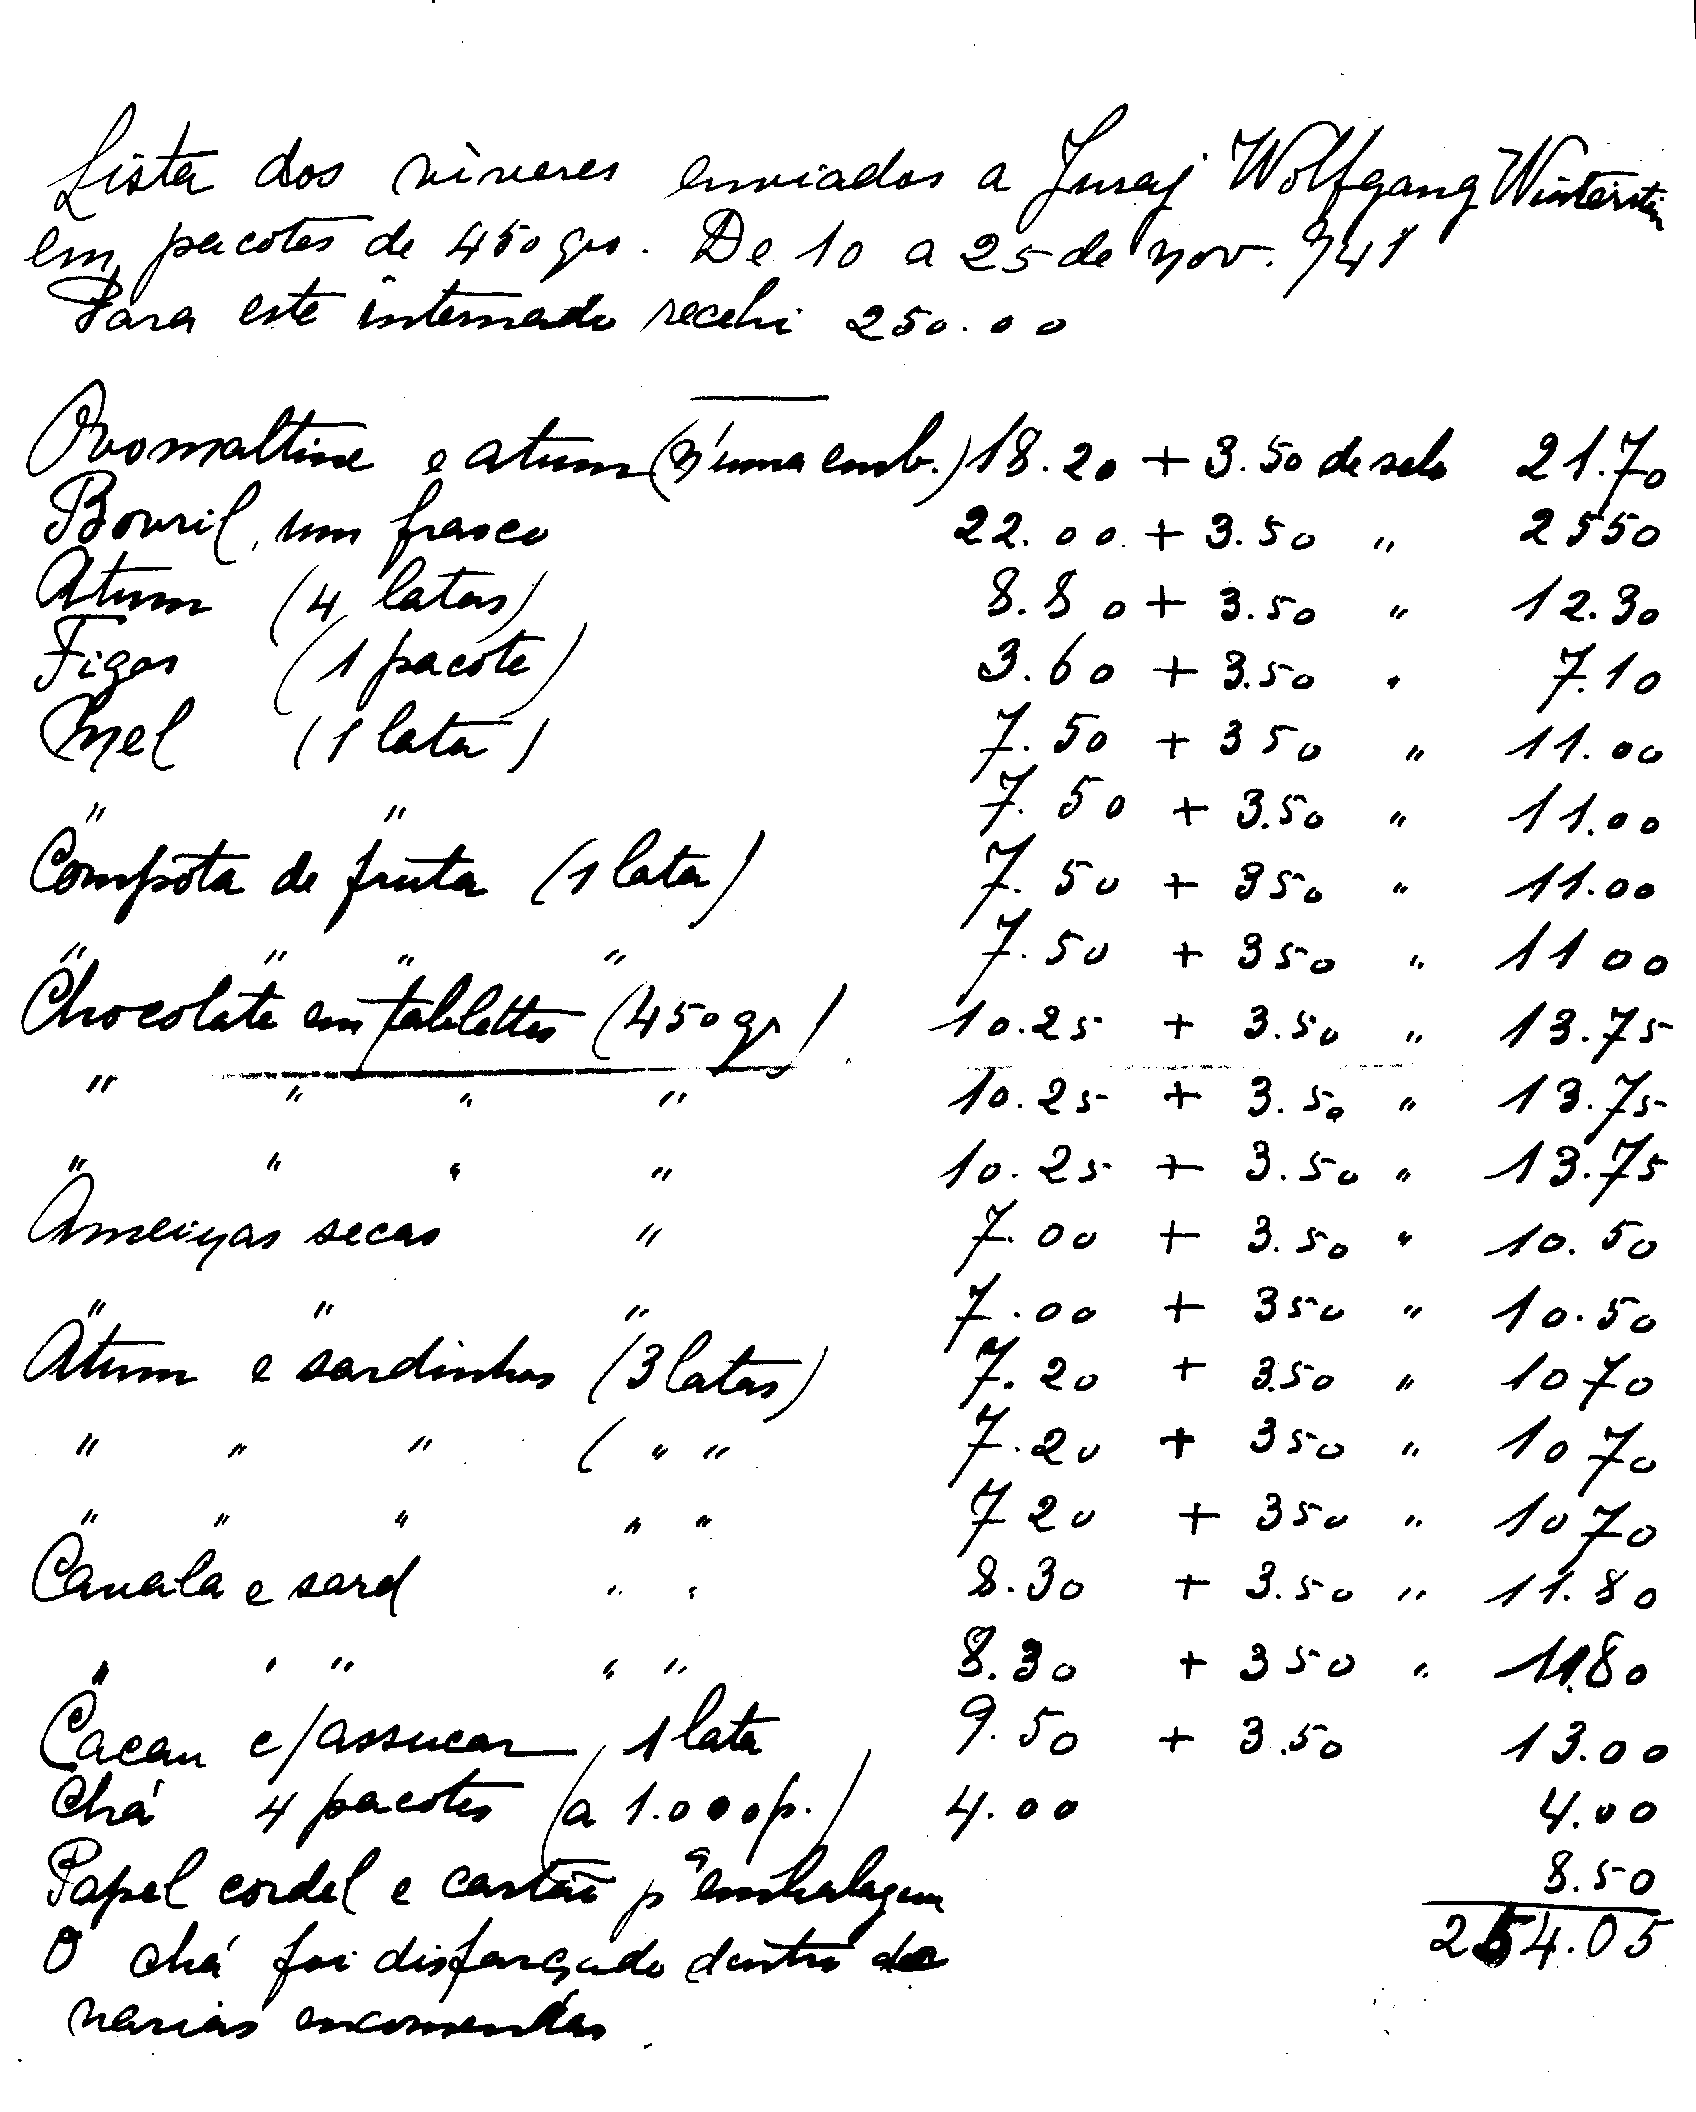 Lista dos viveres enviados a Juraj Wolfgang Winterstein
em pacotes de 450 grs. De 10 a 25 de Nov. 941
Para este internado recebi 250.00
Ovomaltine e atum (n'uma emb.) 18.20 + 3.50 de selo 21.70
Bovril, um frasco 22.00 + 3.50 " 2550
Atum (4 latas) 8.80 + 3.50 " 12.30
Figos (1 pacote) 3.60 + 3.50 " 7.10
Mel (1 lata) 7.50 + 350 " 11.00
" " 7.50 + 3.50 " 11.00
Compota de fruta (1 lata) 7.50 + 350 " 11.00
" " " " 7.50 + 350 " 11 00
Chocolate em tablettes (450 gr) 10.25 + 3.50 " 13.75
" " " " 10.25 + 3.50 " 13.75
" " " " 10.25 + 3.50 " 13.75
Ameixas secas " 7.00 + 3.50 " 10.50
" " " 7.00 + 350 " 10.50
Atum e sardinhas (3 latas) 7.20 + 3.50 " 10 70
" " " ( " " 7.20 + 350 " 10 70
" " " " " 7 20 + 350 " 10 70
Cavala e sard " " 8.30 + 3.50 " 11.80
" " " " " 8.30 + 350 " 11.80
Cacau c/assucar, 1 lata 9.50 + 3.50 13.00
Chá 4 pacotes (a 1.000p.) 4.00 4.00
Papel cordel e cartão pª embalagem 8.50
O chá foi disfarçado dentro de 254.05
varias encomendas